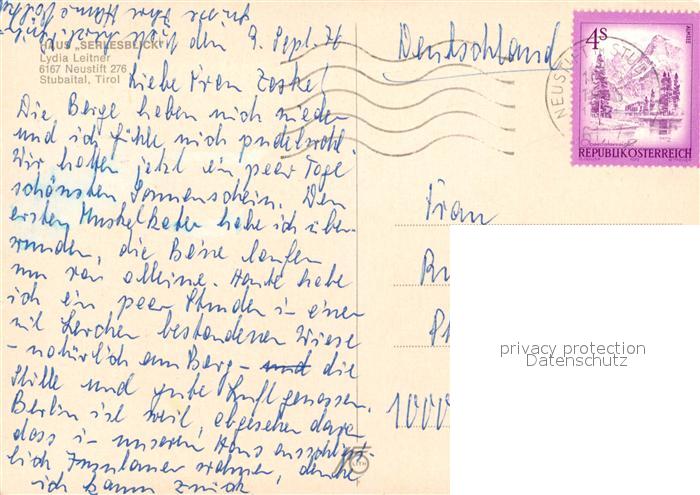 HAUS „SERLESBLICK"
Lydia Leitner
6167 Neustift 276
Stubaital, Tirol
den 9. Sept. 76
Liebe Frau Zeske!
Die Berge haben mich wieder
und ich fühle mich pudelwohl.
Wir hatten jetzt ein paar Tage
schönsten Sonnenschein. Den
ersten Muskelkater habe ich über-
wunden, die Beine laufen
nun von alleine. Heute habe
ich ein paar Stunden in einer
mit Lerchen bestandenen Wiese
- natürlich am Berg - und die
Stille und gute Luft genossen.
Berlin ist weit, abgesehen davon
dass in unserem Haus ausschließ-
lich Insulaner wohnen, denke
ich kaum zurück
Deutschland
4s
ALMSEE
REPUBLIK ÖSTERREICH
NEUSTIFT
Frau
1000
privacy protection
Datenschutz